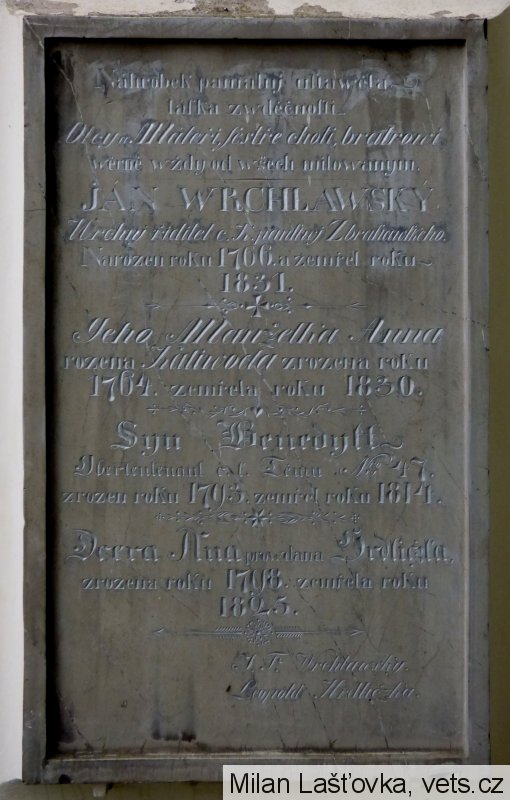 Náhrobek pamatný ustawěla
láska zwděčnosti.
Otcy a Mateři, sestře choti, bratrowi
wěrně wždy od wšech milowaným.
JAN WRCHLAWSKÝ
Wrchní říditel c. K. panstwj Zbraslandkého.
Narozen roku 1766. a zemřel roku
1831.
Jeho Manželka Anna
rozena Kalinoda zrozena roku
1764. zemřela roku 1830.
Syn Benedykt
Obertentenant od l. Temu Nro 47.
zrozen roku 1793. zemřel roku 1814.
Dcera Anna prowdana Hrdlička,
zrozena roku 1798. zemřela roku
1825.
J. F. Wrchlawsky.
Leopold Hrdlička.
Milan Lašťovka, vets.cz